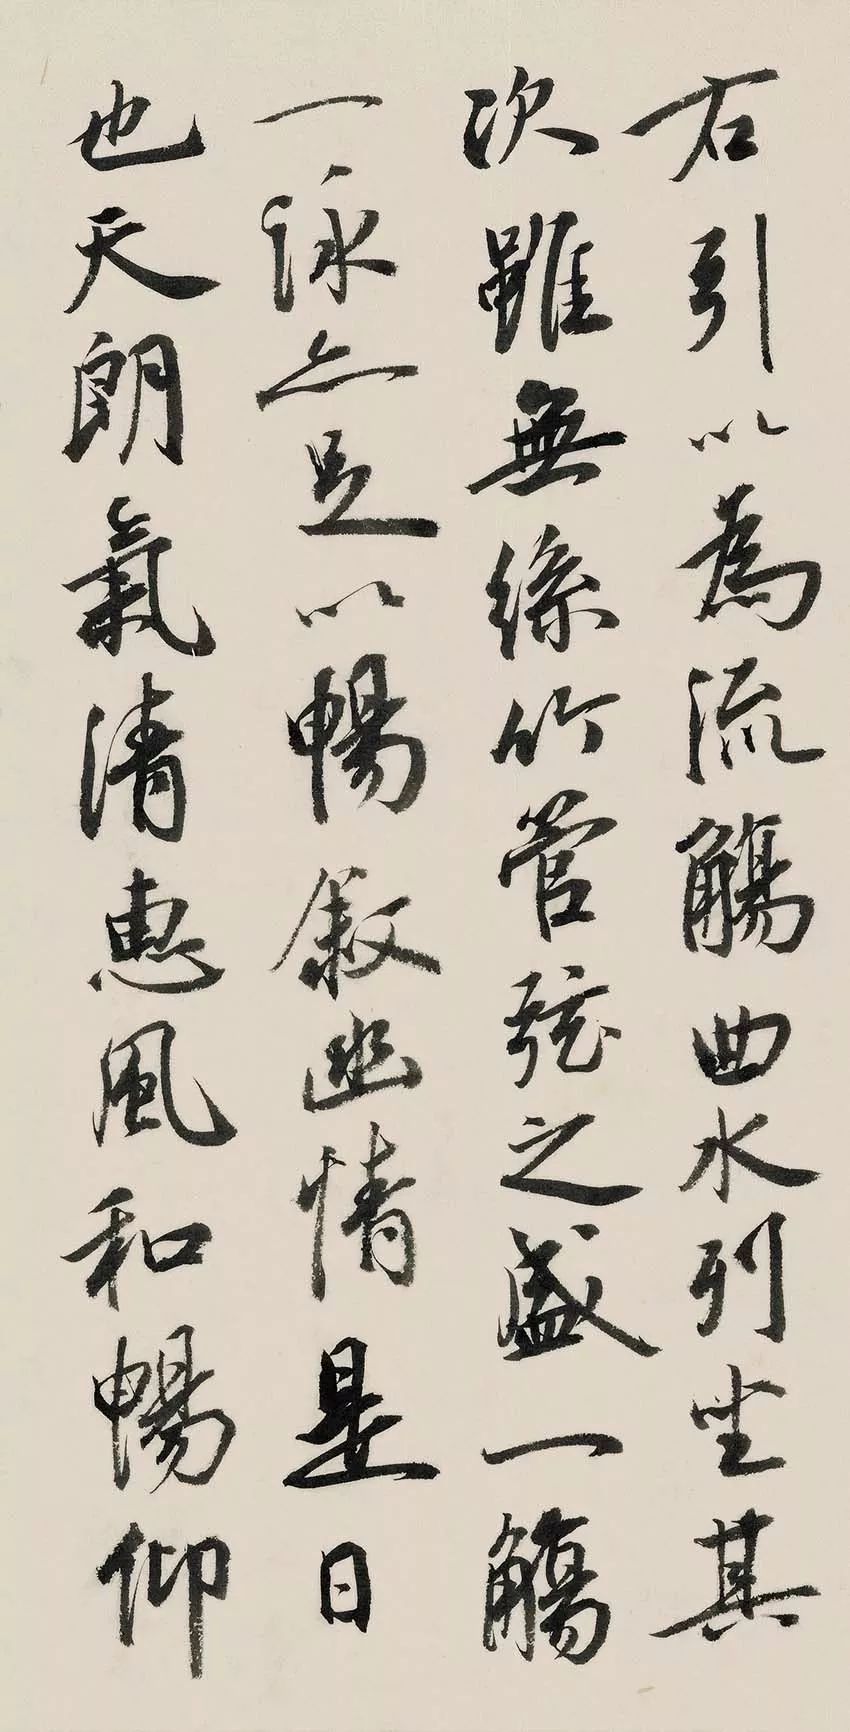 右引以為流觴曲水列坐其
次雖無絲竹管弦之盛一觴
一詠亦足以暢敘幽情是日
也天朗氣清惠風和暢仰